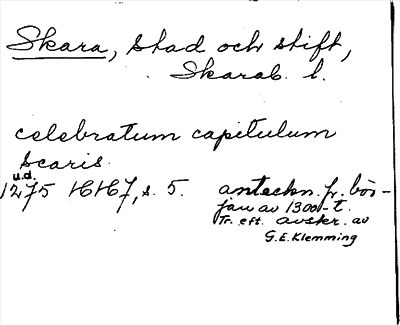 Skara, stad och stift,
Skarab. l.
celebratum capitulum
scaris
u.d.
1275 HH 7, s. 5. anteckn. fr. bör-
jan av 1300-t.
Tr. eft. avskr. av
G.E. Klemming